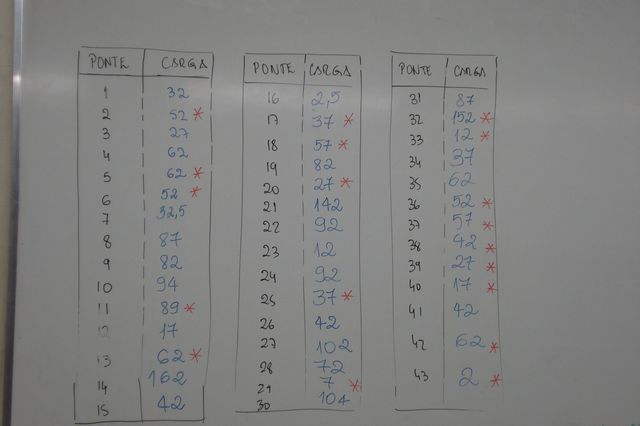 PONTE CARGA
1 32
2 52 *
3 27
4 62
5 62 *
6 52 *
7 32,5
8 87
9 82
10 94
11 89 *
12 17
13 62 *
14 162
15 42
PONTE CARGA
16 2,5
17 37 *
18 57 *
19 82
20 27 *
21 142
22 92
23 12
24 92
25 37 *
26 42
27 102
28 72
29 7 *
30 104
PONTE CARGA
31 87
32 152 *
33 12 *
34 37
35 62
36 52 *
37 57 *
38 42 *
39 27 *
40 17 *
41 42
42 62 *
43 2 *